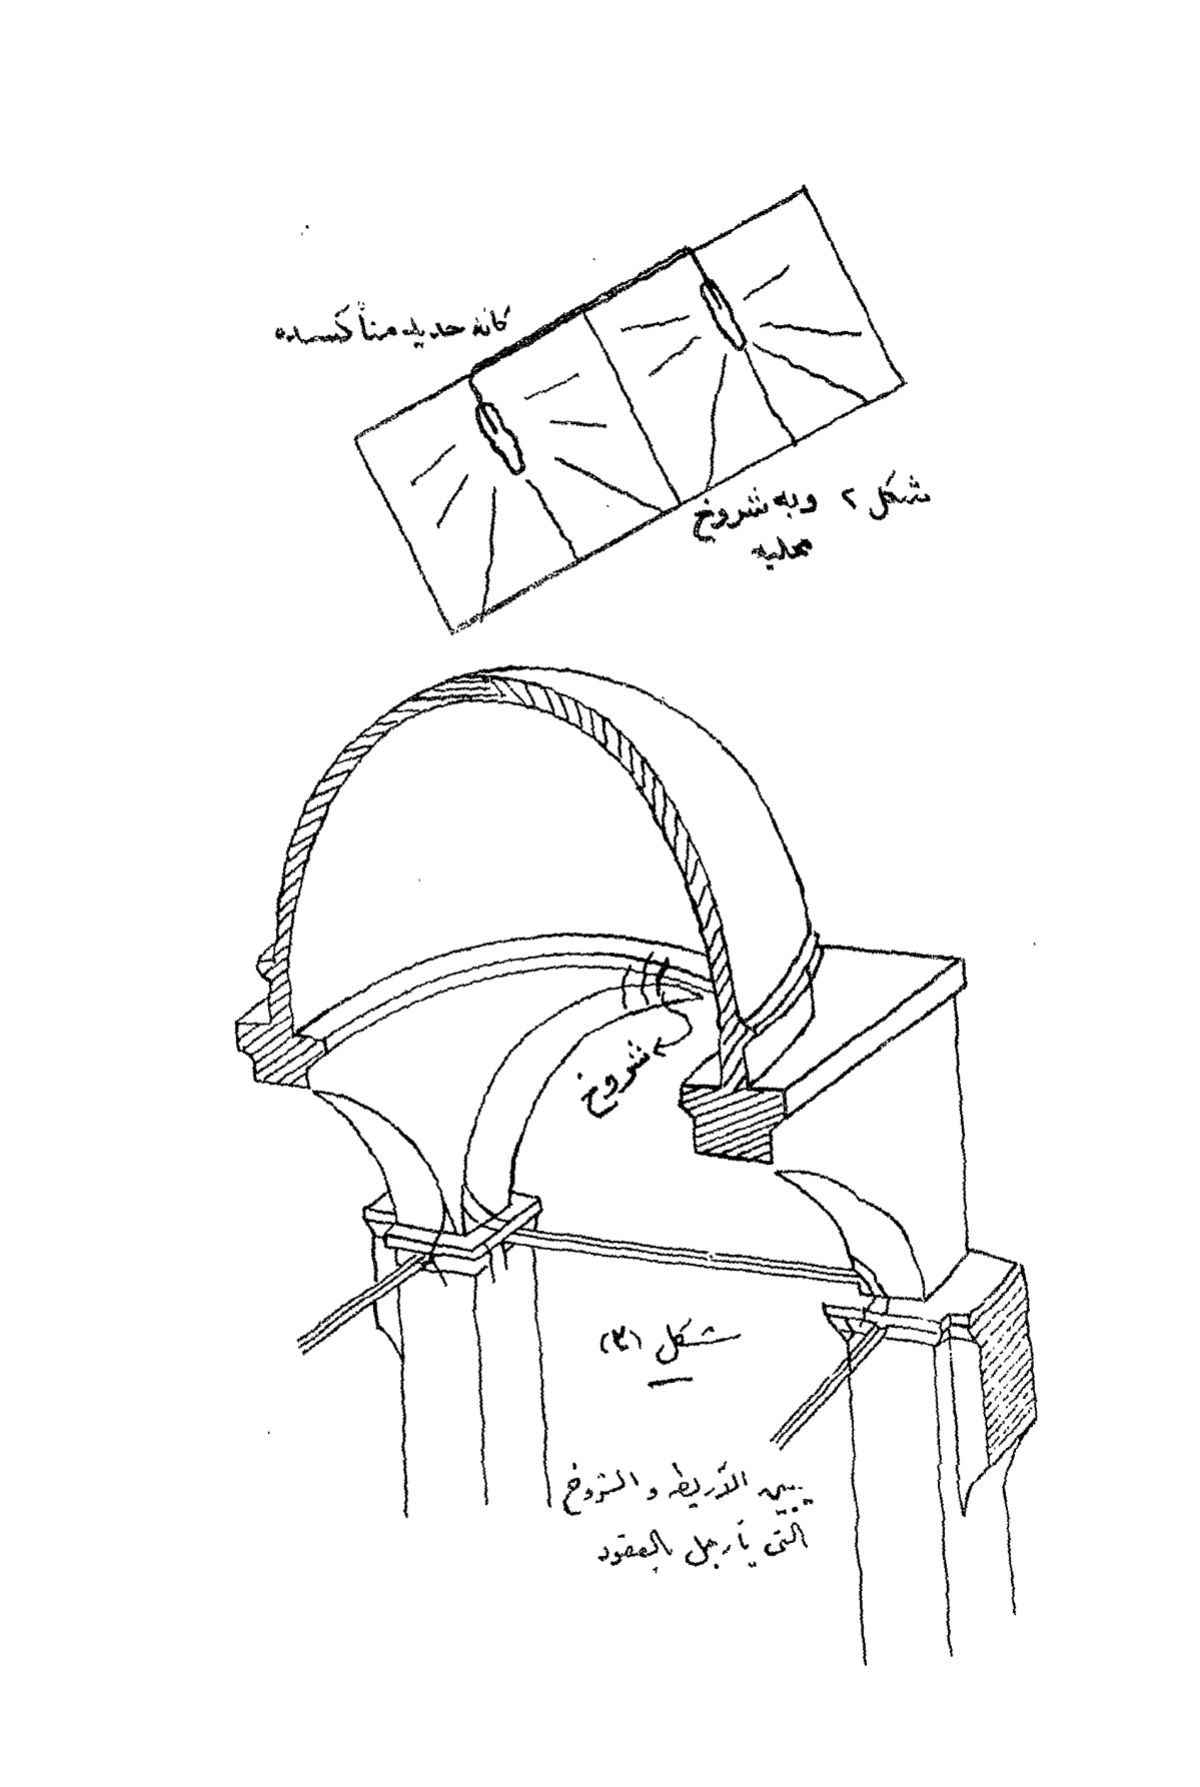 كانه حديديه متأكسده
شكل ٢ وبه شروخ
محليه
شروخ
شكل (٣)
يبين الأربطه والشروخ
التى بأرجل العقود